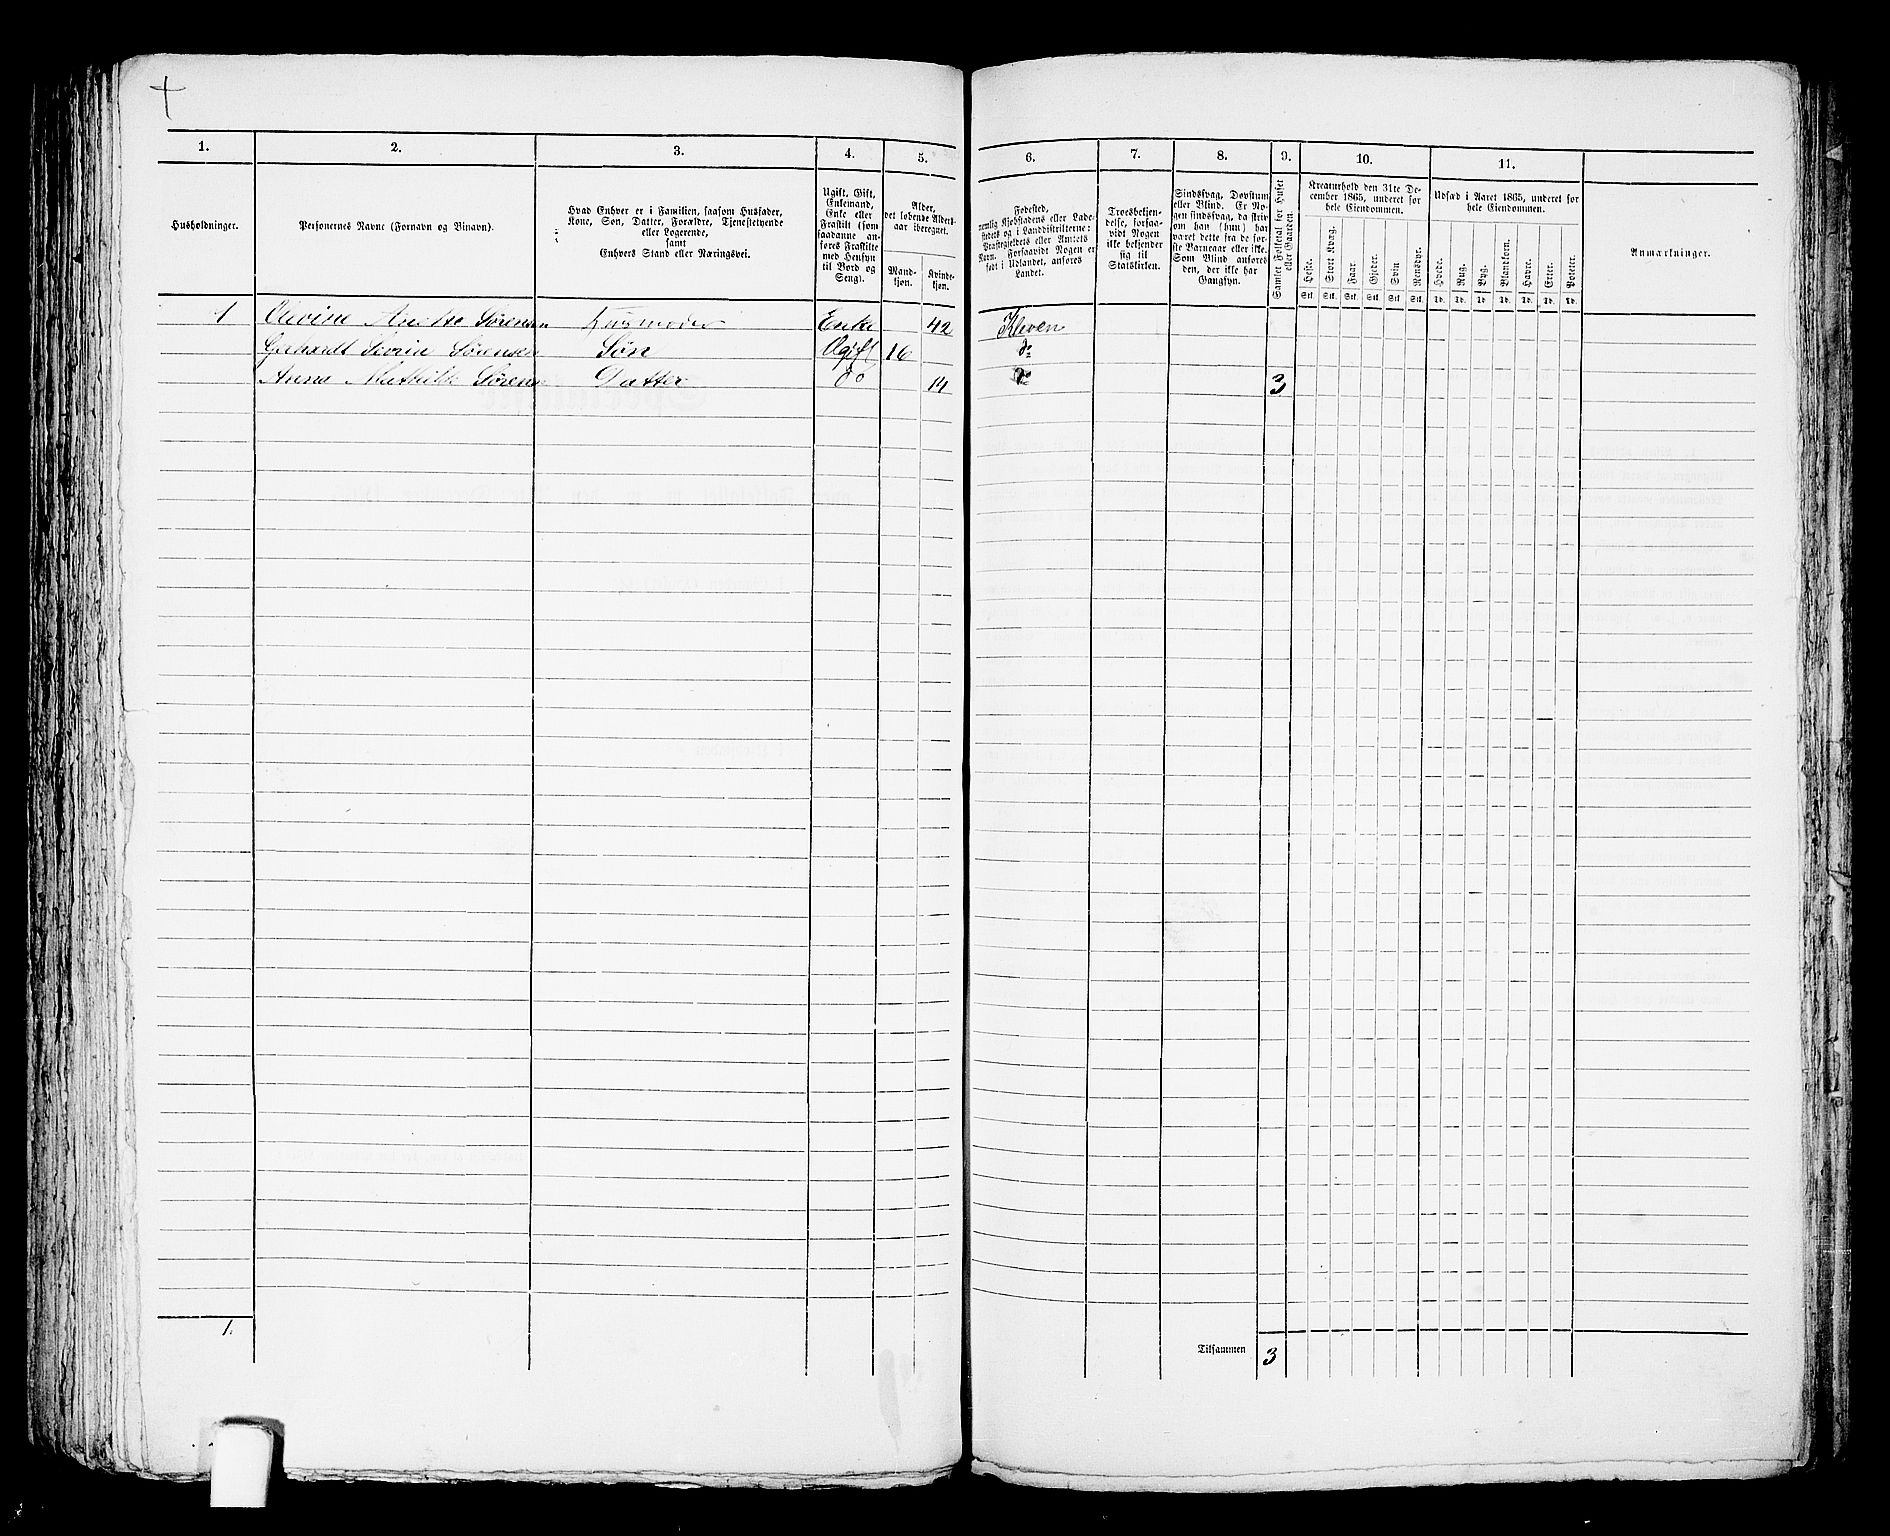 1. 2. 3. 4. 5. 6. 7. 8. 9. 10. 11.
Husholdninger.
Personernes Navne (Fornavn og Binavn).
Hvad Enhver er i Familien, saasom Husfader,
Kone, Søn, Datter, Forældre, Tjenestetyende
eller Logerende,
samt
Enhvers Stand eller Næringsvei.
Ugift, Gift,
Enkemand,
Enke eller
Fraskilt (som
saadanne an-
føres Fraskilte
med Hensyn
til Bord og
Seng).
Alder,
det løbende Alders-
aar iberegnet.
Mand-
kjøn.
Kvinde-
kjøn.
Fødested,
nemlig Kjøbstadens eller Lade-
stedets og i Landdistrikterne:
Præstegjeldets eller Amtets
Navn. Forsaavidt Nogen er
født i Udlandet, anføres
Landet.
Troesbekjen-
delse, forsaa-
vidt Nogen
ikke bekjender
sig til
Statskirken.
Sindssvag, Døvstum
eller Blind. Er No-
gen sindssvag, da skriv
om han (hun) har
været dette fra de før-
ste Barneaar eller ikke.
Som Blind anføres
den, der ikke har
Gangsyn.
Samlet Folketal for Huset
eller Gaarden.
Kreaturhold den 31te De-
cember 1865, underet for
hele Eiendommen.
Heste. Stort Kvæg. Faar. Gjeder. Svin. Rensdyr.
Stk. Stk. Stk. Stk. Stk. Stk.
Udsæd i Aaret 1865, underet for
hele Eiendommen.
Hvede. Rug. Byg. Blandkorn. Havre. Erter. Poteter.
Td. Td. Td. Td. Td. Td. Td.
Anmærkninger.
1 Olevine Anette Sørensen Husmoder Enke 42 Kleven
Gerhardt Severin Sørensen Søn Ugift 16 do
Anna Mathilde Sørensen Datter do 14 do 3
1.
Tilsammen 3